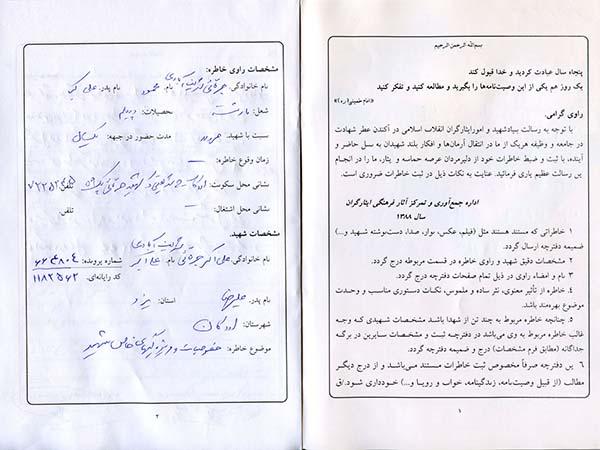 بسم‌الله الرحمن الرحیم
پنجاه سال عبادت کردید و خدا قبول کند
یک روز هم یکی از این وصیت‌نامه‌ها را بگیرید و مطالعه کنید و تفکر کنید
«امام خمینی(ره)»
راوی گرامی.
با توجه به رسالت بنیادشهید و امورایثارگران انقلاب اسلامی در آکندن عطر شهادت
در جامعه و وظیفه هریک از ما در انتقال آرمان‌ها و افکار بلند شهیدان به نسل حاضر و
آینده، با ثبت و ضبط خاطرات خود از دلیرمردان عرصه حماسه و یثار، ما را در انجام
یـن رسالت عظیم یاری فرمائید. عنایت به نکات ذیل در ثبت خاطرات ضروری است.
اداره جمع‌آوری و تمرکز آثار فرهنگی ایثارگران
سال ۱۳۸۸
۱ خاطراتی که مستند هستند مثل (فیلم، عکس، نوار، صدا، دست‌نوشته شـهید و...)
ضمیمه دفترچه ارسال گردد.
۲ مشخصات دقیق شهید و راوی خاطره در قسمت مربوطه درج گردد.
۳ نام و امضاء راوی در ذیل تمام صفحات دفترچه درج گردد.
۴ خاطره از تأثیر معنوی، نثر ساده و ملموس، نکـات دستوری مناسـب و وحـدت
موضوع بهره‌مند باشد.
۵ چنانچه خاطره مربوط به چند تن از شهدا باشـد مشخصـات شـهیدی کـه وجـه
غالب خاطره مربوط به وی می‌باشد در دفترچـه ثبـت و مشخـصات سـایرین در برگـه
جداگانه (مطابق فرم مشخصات) درج و ضمیمه دفترچه گردد.
۶ یـن دفترچه صرفاً مخصوص ثبت خاطرات مستنـد مـی‌باشـد و از درج دیگـر
مطالب (از قبیل وصیت‌نامه، زندگینامه، خواب و رویـا و...) خـودداری شود.
۱
مشخصات راوی خاطره:
نام خانوادگی: نام: محمود نام پدر: علی
شغل: تحصیلات: دیپلم
نسبت با شهید: مدت حضور در جبهه:
زمان وقوع خاطره:
نشانی محل سکونت: تلفن:
نشانی محل اشتغال: تلفن:
مشخصات شهید.
نام خانوادگی: نام: علی اکبر شماره پرونده:
کد رایانه‌ای.
نام پدر: علیرضا استان: یزد
شهرستان: اردکان
موضوع خاطره: خصوصیات و ویژگیهای خاص شهید
۲